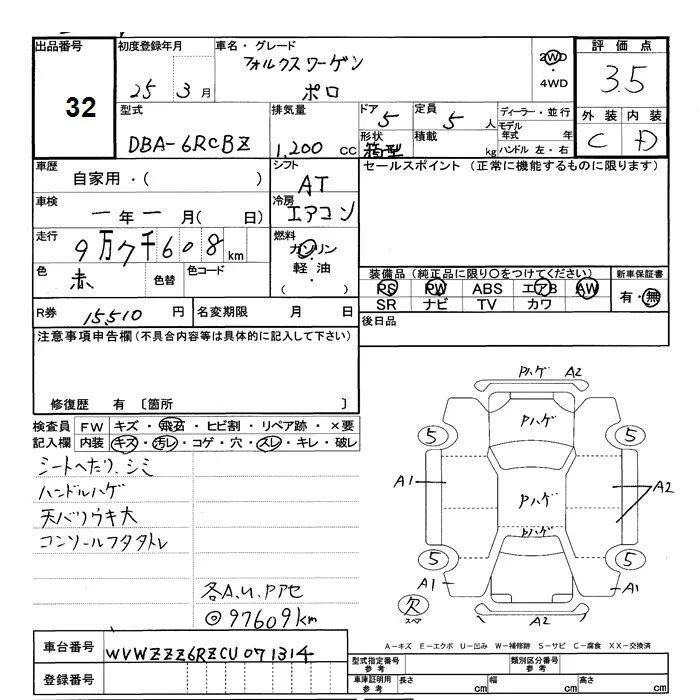 出品番号 32
初度登録年月 25 3月
車名・グレード フォルクスワーゲン ポロ
2WD ・ 4WD
評価点 3.5
外装 内装
C D
型式 DBA-6RCBZ
排気量 1,200 cc
ドア 5
形状 箱型
定員 5 人
積載 kg
ディーラー・並行
モデル年式 年
ハンドル 左・右
車歴 自家用・( )
シフト AT
セールスポイント (正常に機能するものに限ります)
車検 一年一月( 日)
冷房 エアコン
走行 9万7千608km
燃料 ガソリン ・ 軽油 ・ ( )
色 赤 色替 色コード
装備品 (純正品に限り○をつけてください)
新車保証書
PS PW ABS エアB AW
有・無
SR ナビ TV カワ
R券 15,510 円 名変期限 月 日
後日品
注意事項申告欄 (不具合内容等は具体的に記入して下さい)
修復歴 有 〔箇所 〕
検査員記入欄
FW キズ・飛石・ヒビ割・リペア跡・×要
内装 キズ・汚レ・コゲ・穴・スレ・キレ・破レ
シートへたり、シミ
ハンドルハゲ
天バリウキ大
コンソールフタタトレ
各A.U.Pアセ
◎97609km
Pハゲ A2
Pハゲ
5 5
A1 Pハゲ A2
Pハゲ
5 5
A1 A1
欠
スペア
A2
A-キズ E-エクボ U-凹み W-補修跡 S-サビ C-腐食 XX-交換済
車台番号 WVWZZZ6RZCU071314
登録番号
型式指定番号 参考 類別区分番号 参考
車庫証明用 参考 長さ cm 幅 cm 高さ cm